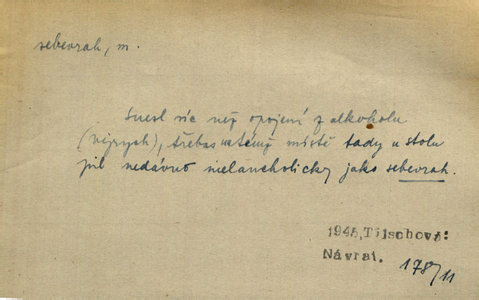 sebevrah, m.
Snesl víc než opojení z alkoholu
(Vojtych), třebas na témž místě tady u stolu
pil nedávno melancholicky jako sebevrah.
1945, Tilschová:
Návrat.
178/11